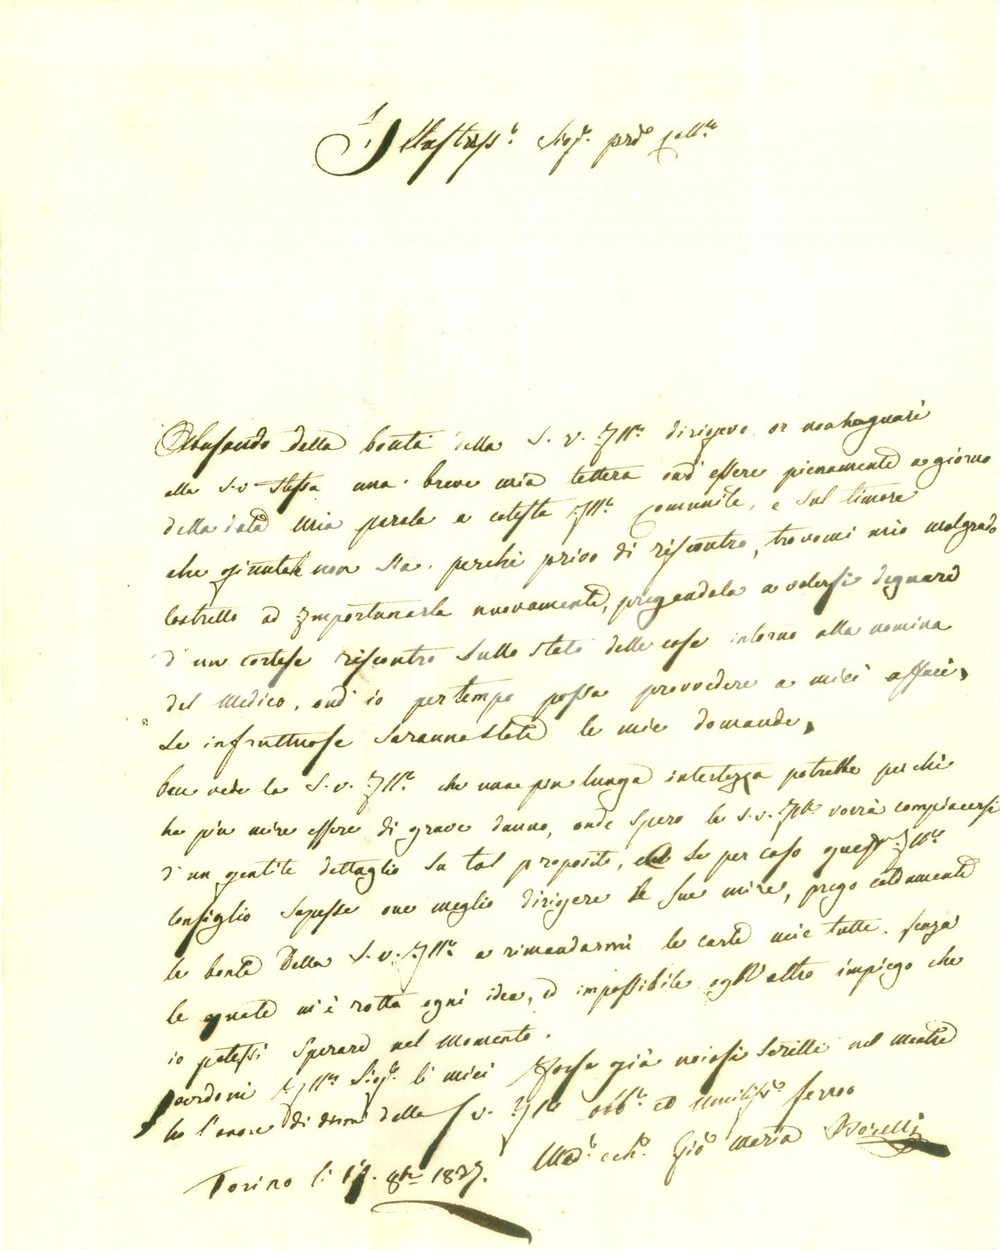 Illustriss.e Sig.r prõ Coll.mo
Abusando della bontà della S. V. Ill.ma dirigevo or non ha guari
alla S. V. stessa una breve mia lettera ond'essere pienamente a giorno
della data mia parola a cotesta Ill.ma Comunità, e sul timore
che giunta le non sia, perchè privo di riscontro, trovomi mio malgrado
costretto ad importunarla nuovamente, pregandola a volersi degnare
d'un cortese riscontro sullo stato delle cose intorno alla nomina
del Medico, ond'io per tempo possa provvedere a miei affari,
se infruttuose saranno state le mie domande,
ben vede la S. V. Ill.ma che una più lunga incertezza potrebbe per chi
ha più mire essere di grave danno, onde spero la S. V. Ill.ma vorrà compiacersi
d'un gentile dettaglio su tal proposito, che se per caso quest' Ill.mo
Consiglio sapesse ove meglio dirigere le sue mire, prego caldamente
la bontà della S. V. Ill.ma a rimandarmi le carte mie tutte, senza
le quali m'è rotta ogni idea, ed impossibile ogn'altro impiego che
io potessi sperare nel momento.
Perdoni Ill.mo Sig.r li miei forse già noiosi scritti nel mentre
ho l'onore di dirmi della S. V. Ill.ma Obb.mo ed Umiliss.mo servo
Torino li 17. 8bre 1827. Med.o Ch.o Gio Maria Borelli